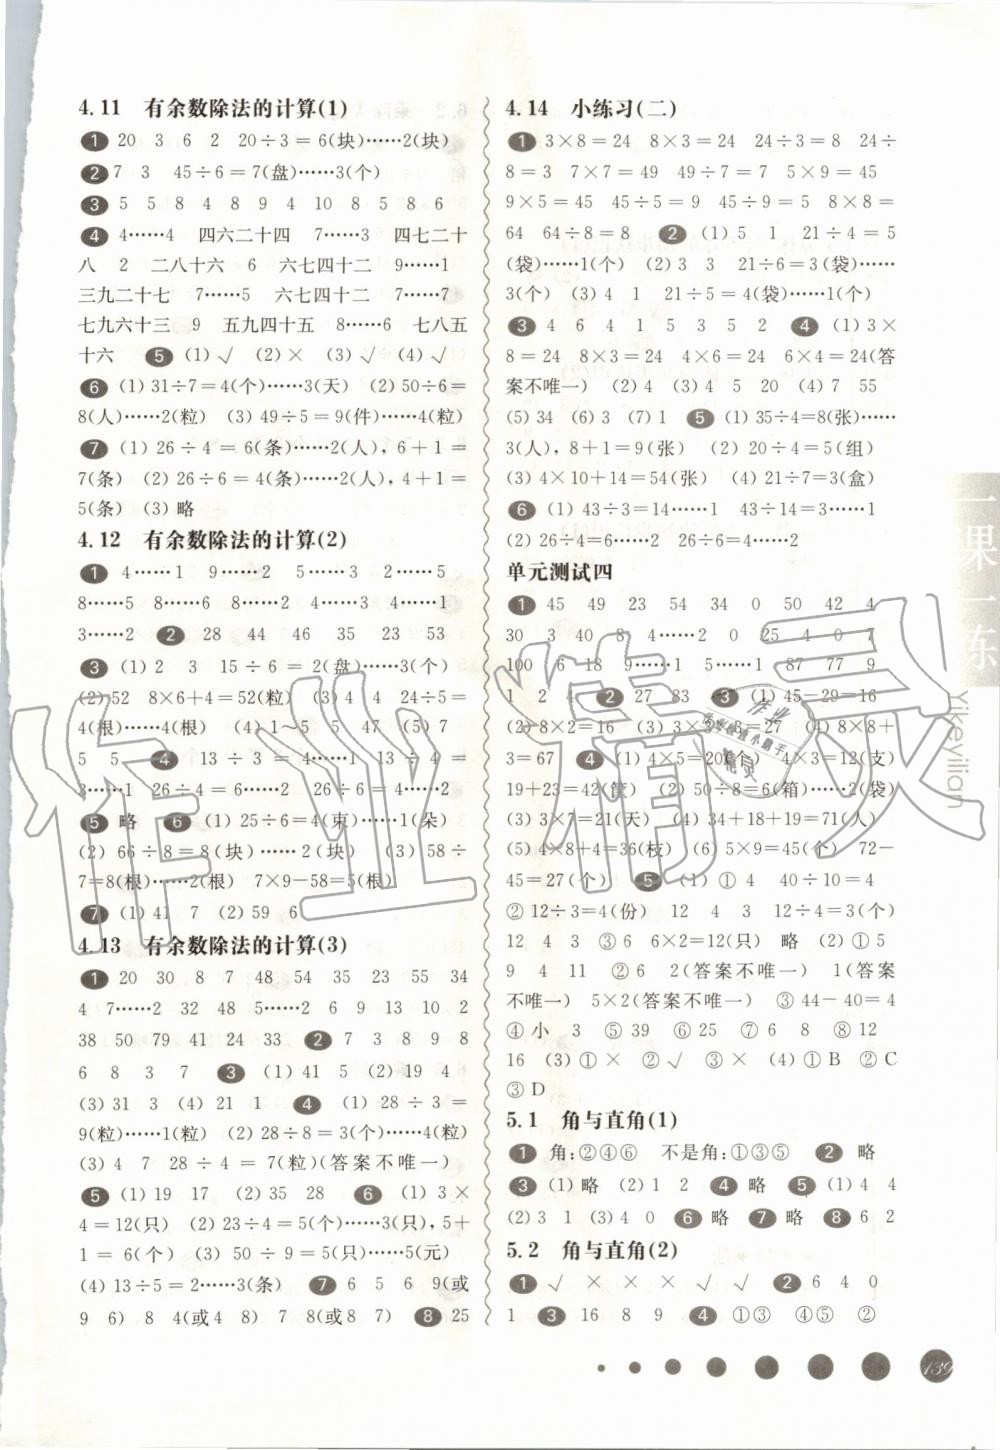 4.11 有余数除法的计算(1)
1 20 3 6 2 20÷3=6(块)……2(块)
2 7 3 45÷6=7(盘)……3(个)
3 5 5 8 4 8 9 4 10 8 5 8 6
4 4……4 四六二十四 7……3 四七二十
八 2 二八十六 6 六七四十二 9……1
三九二十七 7……5 六七四十二 7……7
七九六十三 9 五九四十五 8……6 七八五
十六 5 (1)√ (2)× (3)√ (4)√
6 (1)31÷7=4(个)……3(天) (2)50÷6=
8(人)……2(粒) (3)49÷5=9(件)……4(粒)
7 (1)26÷4=6(条)……2(人),6+1=
7(条) (2)26÷6=4(条)……2(人),4+1=
5(条) (3)略
4.12 有余数除法的计算(2)
1 4……1 9……2 5……3 2……5
8……5 8……6 8……2 4……3 4……1
3……2 2 28 44 46 35 23 53
3 (1)2 3 15÷6=2(盘)……3(个)
(2)52 8×6+4=52(粒) (3)4 4 24÷5=
4(根)……4(根) (4)1～5 5 47 (5)7
5 5 4 13÷3=4……1 13÷4=
3……1 26÷4=6……2 26÷6=4……2
5 略 6 (1)25÷6=4(束)……1(朵)
(2)66÷8=8(块)……2(块) (3)58÷
7=8(根)……2(根) 7×9-58=5(根)
7 (1)41 7 (2)59 6
4.13 有余数除法的计算(3)
1 20 30 8 7 48 54 35 23 55 34
4 7……2 32 48 5……2 6 9 13 10 2
38 50 79 41 24 33 2 7 3 8 9 8
6 8 3 7 3 (1)41 5 (2)19 4
(3)31 3 (4)21 1 4 (1)28÷3=
9(粒)……1(粒) (2)28÷8=3(个)……4(粒)
(3)4 7 28÷4=7(粒)(答案不唯一)
5 (1)19 17 (2)35 28 6 (1)3×
4=12(只) (2)23÷4=5(个)……3(只),5+
1=6(个) (3)50÷9=5(只)……5(元)
(4)13÷5=2……3(条) 7 6 5 6 9(或
9 6) 8 4(或4 8) 7 8(或8 7) 8 25
4.14 小练习(二)
1 3×8=24 8×3=24 24÷3=8 24÷
8=3 7×7=49 49÷7=7 5×9=45
9×5=45 45÷5=9 45÷9=5 8×8=
64 64÷8=8 2 (1)5 1 21÷4=5
(袋)……1(个) (2)3 3 21÷6=3(袋)……
3(个) (3)4 1 21÷5=4(袋)……1(个)
3 4 6 4 1 5 3 5 2 4 (1)3×
8=24 8×3=24 4×6=24 6×4=24(答
案不唯一) (2)4 (3)4 5 20 (4)7 55
(5)34 (6)3 (7)1 5 (1)35÷4=8(张)……
3(人),8+1=9(张) (2)20÷4=5(组)
(3)4×10+14=54(张) (4)21÷7=3(盒)
6 (1)43÷3=14……1 43÷14=3……1
(2)26÷4=6……2 26÷6=4……2
单元测试四
1 45 49 23 54 34 0 50 42 4
30 3 40 8 4……2 0 25 4 0 7
100 6 18 9……1 5……1 87 77 9
1 2 4 2 27 83 3 (1)45-29=16
(2)8×2=16 (3)3×9=27 (4)8×8+
3=67 4 (1)4×5=20(个) 4×3=12(支)
19+23=42(筐) (2)50÷8=6(箱)……2(袋)
(3)3×7=21(天) (4)34+18+19=71(人)
(5)4×8+4=36(枝) (6)5×9=45(个) 72-
45=27(个) 5 (1)①4 40÷10=4
②12÷3=4(份) 12 4 3 12÷4=3(个)
12 4 3 ③6 6×2=12(只) 略 (2)①5
9 4 11 ②6 2(答案不唯一) 1(答案
不唯一) 5×2(答案不唯一) ③44-40=4
④小 3 ⑤39 ⑥25 ⑦6 8 ⑧12
16 (3)①× ②√ ③× (4)①B ②C
③D
5.1 角与直角(1)
1 角:②④⑥ 不是角:①③⑤ 2 略
3 (1)略 (2)1 2 4 略 5 (1)4 4
(2)3 1 (3)4 0 6 略 7 略 8 6 2
5.2 角与直角(2)
1 √ × × × √ √ 2 6 4 0
1 3 16 8 9 4 ①③ ④⑤ ②
一课一练
Yikeyilian
139
作业精灵